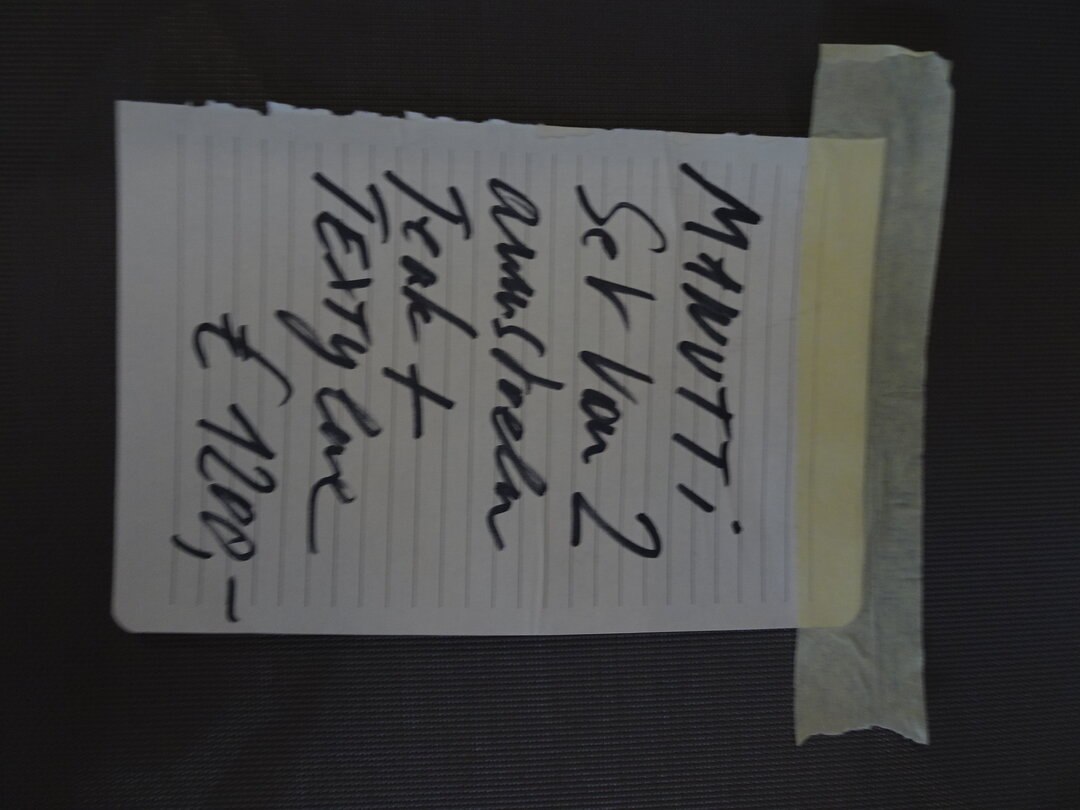 MANUTTi
Set Van 2
armstoelen
Teak +
TEXTylene
€ 1200,-